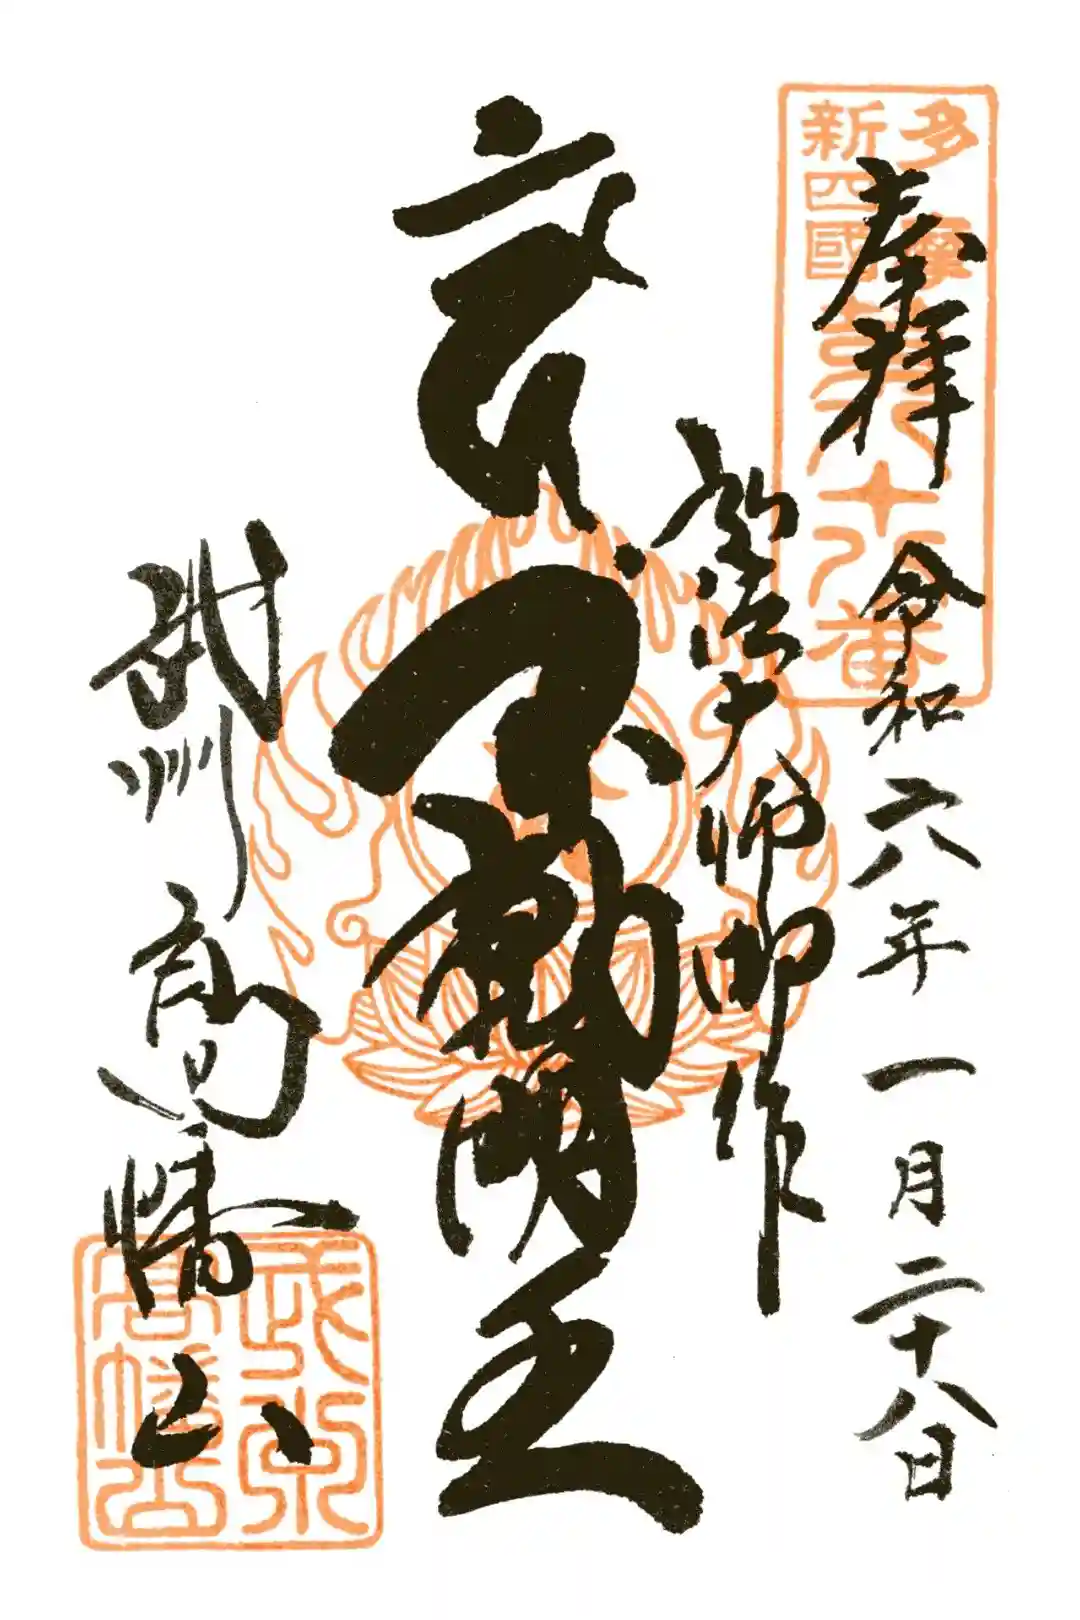 多摩
新四國
第八十八番
奉拝 令和六年一月二十八日
弘法大師御作
不動明王
武州高幡山
武州
高幡山